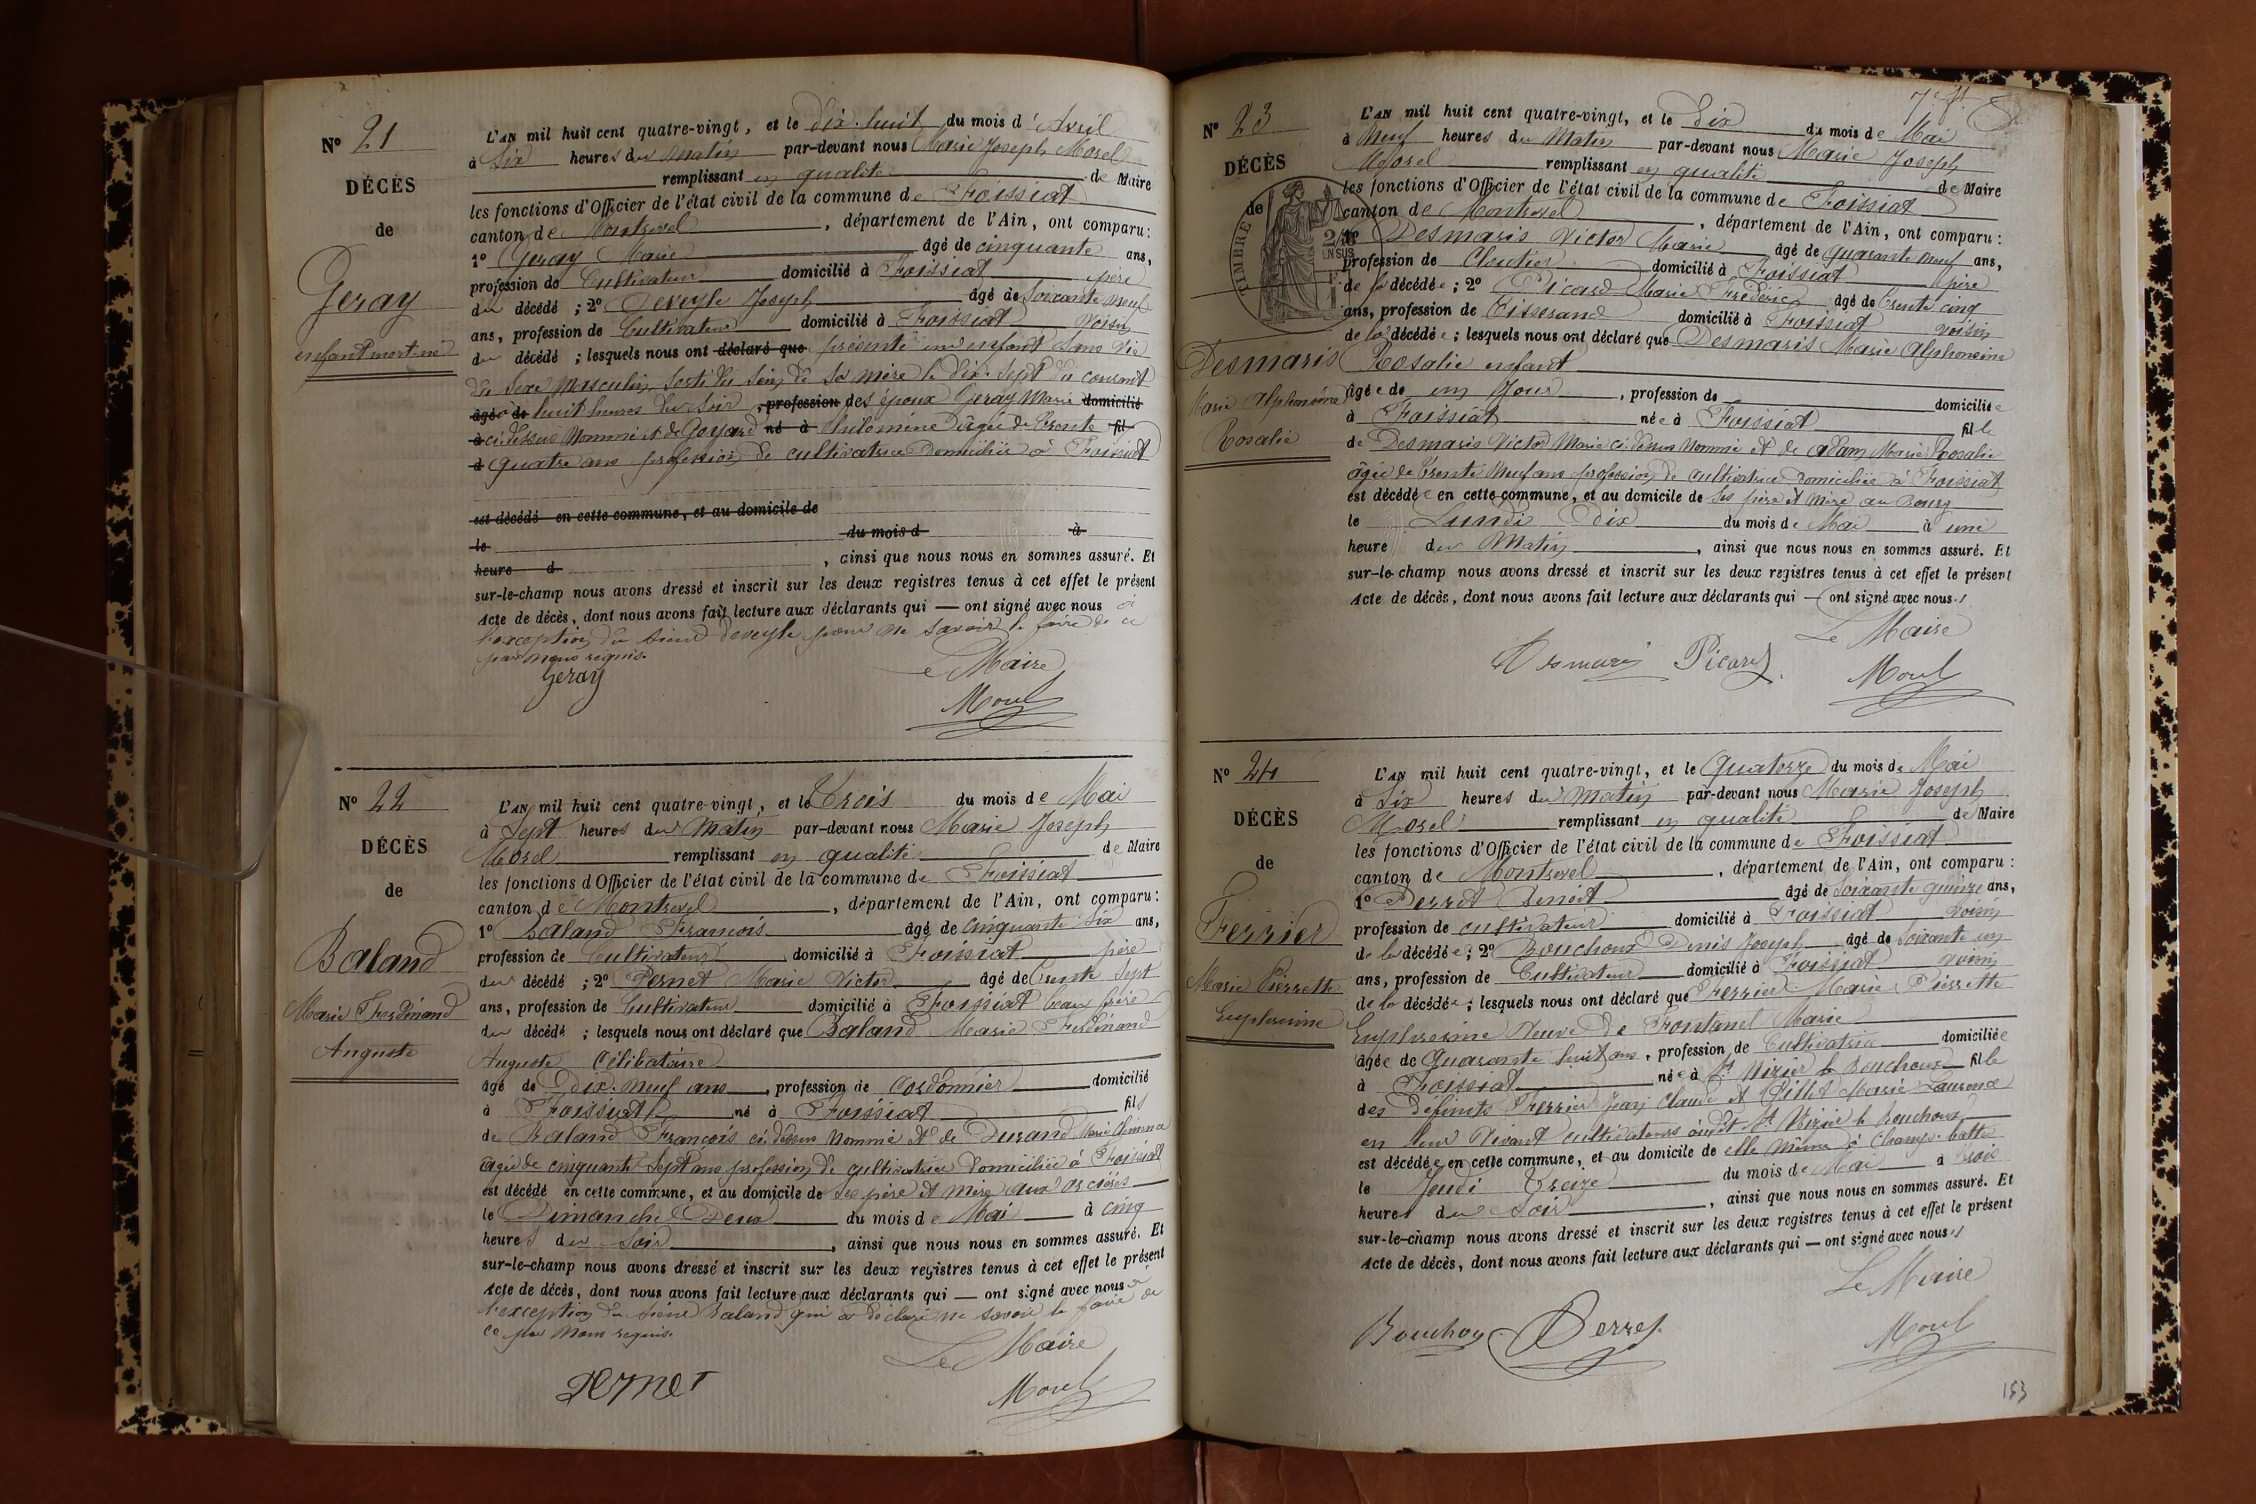 N° 21
DÉCÈS
de
Geray
enfant mort-né
L'AN mil huit cent quatre-vingt, et le dix-huit du mois d'Avril
à Six heures du matin par-devant nous Marie Joseph Morel
remplissant en qualité de Maire
les fonctions d'Officier de l'état civil de la commune de Foissiat
canton de Montrevel, département de l'Ain, ont comparu :
1° Geray Marie âgé de cinquante ans,
profession de Cultivateur domicilié à Foissiat père
du décédé ; 2° Deveyle Joseph âgé de Soixante neuf
ans, profession de Cultivateur domicilié à Foissiat voisin
du décédé ; lesquels nous ont déclaré que présenté un enfant sans vie
du sexe Masculin, sorti du sein de sa mère le dix-sept du courant
âgé de huit heures du soir, profession des époux Geray Marie domicilié
à ci-dessus nommé et de Goyard né à Philomène âgée de trente fil
d quatre ans profession de cultivatrice domiciliée à Foissiat
est décédé en cette commune, et au domicile de
le du mois d à
heure d , ainsi que nous nous en sommes assuré. Et
sur-le-champ nous avons dressé et inscrit sur les deux registres tenus à cet effet le présent
Acte de décès, dont nous avons fait lecture aux déclarants qui — ont signé avec nous à
l'exception du sieur Deveyle pour ne savoir le faire de ce
par nous requis.
Geray
Le Maire
Morel
N° 22
DÉCÈS
de
Baland
Marie Ferdinand
Auguste
L'AN mil huit cent quatre-vingt, et le Trois du mois de Mai
à Sept heures du Matin par-devant nous Marie Joseph
Morel remplissant en qualité de Maire
les fonctions d'Officier de l'état civil de la commune de Foissiat
canton de Montrevel, département de l'Ain, ont comparu :
1° Baland François âgé de Cinquante six ans,
profession de Cultivateur domicilié à Foissiat père
du décédé ; 2° Pernet Marie Victor âgé de Trente sept
ans, profession de Cultivateur domicilié à Foissiat beau frère
du décédé ; lesquels nous ont déclaré que Baland Marie Ferdinand
Auguste Célibataire
âgé de Dix-neuf ans, profession de Cordonnier domicilié
à Foissiat né à Foissiat fils
de Baland François ci-dessus nommé et de Durand Marie
âgée de cinquante sept ans profession de cultivatrice domiciliée à Foissiat
est décédé en cette commune, et au domicile de ses père et mère aux
le Dimanche Deux du mois de Mai à cinq
heures du Soir, ainsi que nous nous en sommes assuré. Et
sur-le-champ nous avons dressé et inscrit sur les deux registres tenus à cet effet le présent
Acte de décès, dont nous avons fait lecture aux déclarants qui — ont signé avec nous à
l'exception du sieur Baland qui a déclaré ne savoir le faire de
ce par nous requis.
Pernet
Le Maire
Morel
7e
N° 23
DÉCÈS
de
TIMBRE
Desmaris
Marie Alphonsine
Rosalie
L'AN mil huit cent quatre-vingt, et le Dix du mois de Mai
à Neuf heures du Matin par-devant nous Marie Joseph
Morel remplissant en qualité de Maire
les fonctions d'Officier de l'état civil de la commune de Foissiat
canton de Montrevel, département de l'Ain, ont comparu :
1° Desmaris Victor Marie âgé de quarante neuf ans,
profession de Cloutier domicilié à Foissiat père
de la décédée ; 2° Picard Marie Frédéric âgé de trente cinq
ans, profession de Tisserand domicilié à Foissiat voisin
de la décédée ; lesquels nous ont déclaré que Desmaris Marie Alphonsine
Rosalie enfant
âgée de un Jour, profession de domiciliée
à Foissiat née à Foissiat fille
de Desmaris Victor Marie ci-dessus nommé et de Adam Marie Rosalie
âgée de trente neuf ans profession de cultivatrice domiciliée à Foissiat
est décédée en cette commune, et au domicile de ses père et mère au Bourg
le Lundi Dix du mois de Mai à une
heure du Matin, ainsi que nous nous en sommes assuré. Et
sur-le-champ nous avons dressé et inscrit sur les deux registres tenus à cet effet le présent
Acte de décès, dont nous avons fait lecture aux déclarants qui — ont signé avec nous.
Le Maire
Desmaris Picard
Morel
N° 24
DÉCÈS
de
Ferrier
Marie Pierrette
Euphrosine
L'AN mil huit cent quatre-vingt, et le Quatorze du mois de Mai
à Six heures du Matin par-devant nous Marie Joseph
Morel remplissant en qualité de Maire
les fonctions d'Officier de l'état civil de la commune de Foissiat
canton de Montrevel, département de l'Ain, ont comparu :
1° Perret Benoit âgé de Soixante quinze ans,
profession de cultivateur domicilié à Foissiat voisin
de la décédée ; 2° Bouchoux Denis Joseph âgé de Soixante un
ans, profession de Cultivateur domicilié à Foissiat voisin
de la décédée ; lesquels nous ont déclaré que Ferrier Marie Pierrette
Euphrosine Veuve de Fontanel Marie
âgée de Quarante huit ans, profession de Cultivatrice domiciliée
à Foissiat née à St Nizier le Bouchoux fille
des Défunts Ferrier Jean Claude et Pillet Marie Laurence
en leur vivant cultivateurs audit St Nizier le Bouchoux
est décédée en cette commune, et au domicile de elle même à Champ-batte
le Jeudi Treize du mois de Mai à trois
heures du Soir, ainsi que nous nous en sommes assuré. Et
sur-le-champ nous avons dressé et inscrit sur les deux registres tenus à cet effet le présent
Acte de décès, dont nous avons fait lecture aux déclarants qui — ont signé avec nous.
Le Maire
Bouchoux Perret
Morel
153